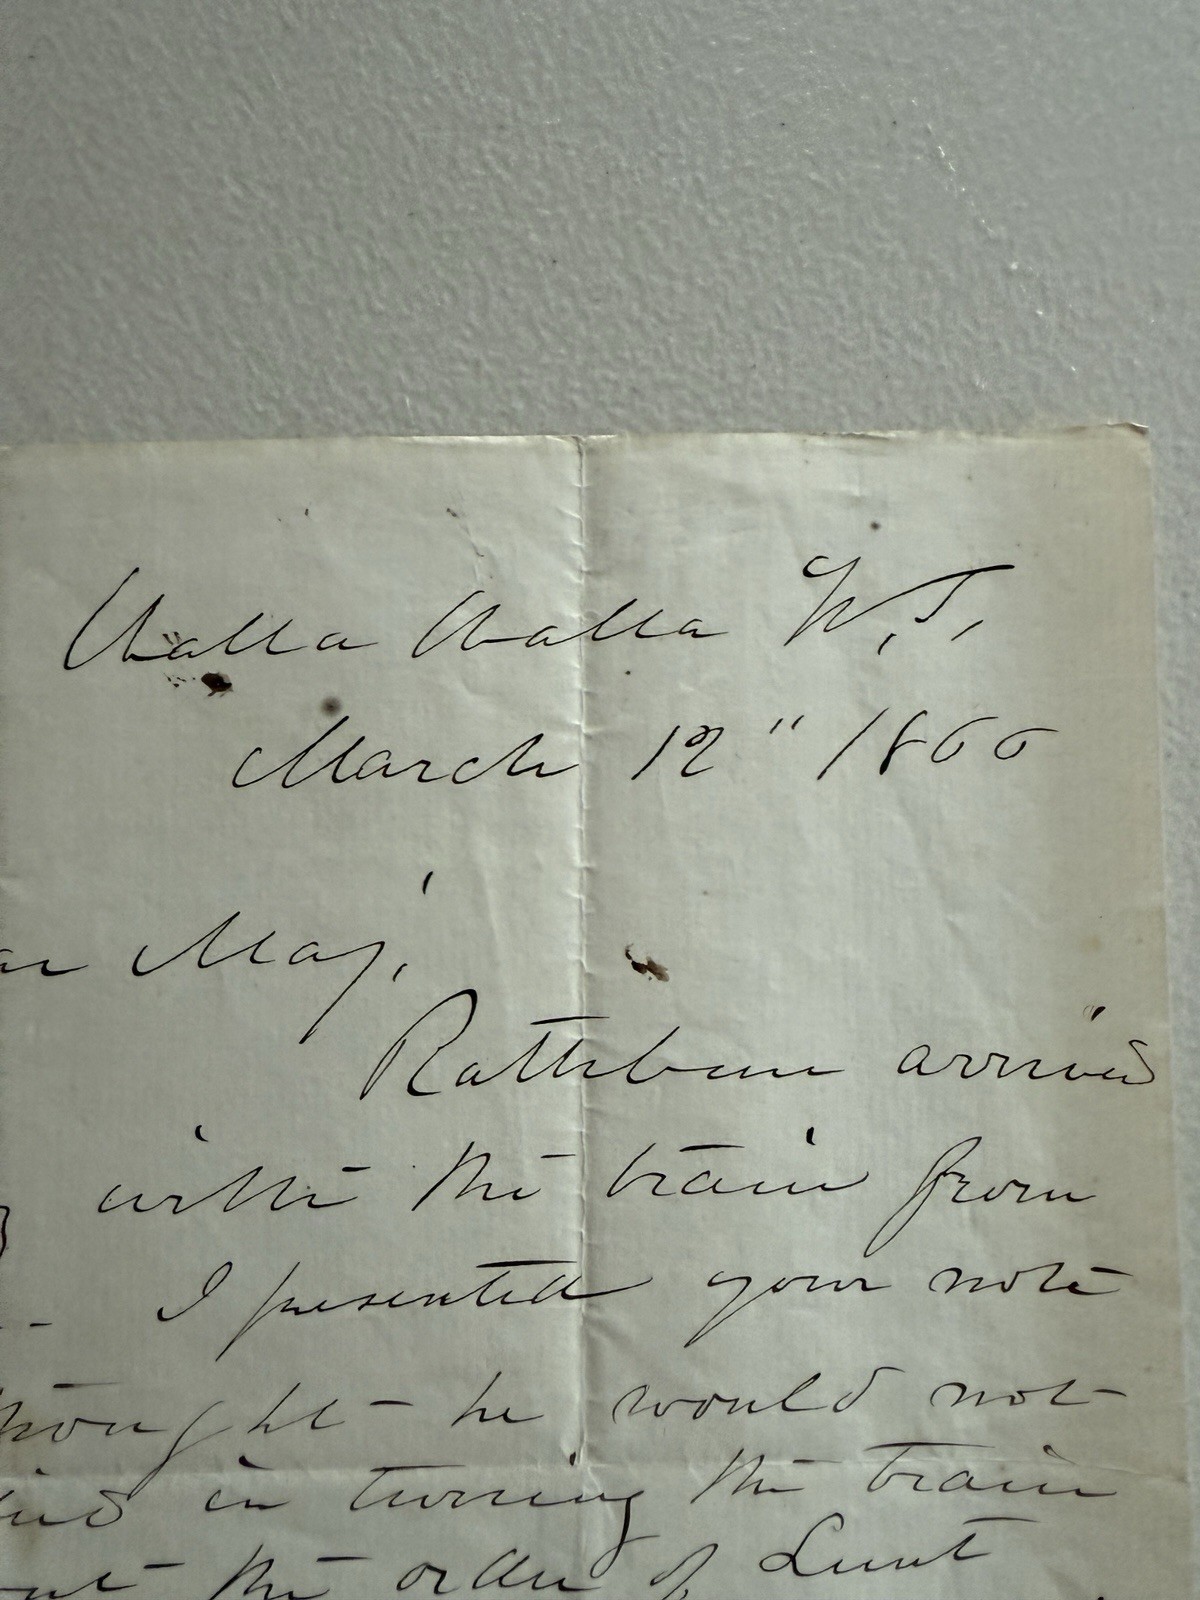 Walla Walla W.T.,
March 12" 1866
Maj.
Rathbun arrived
with the train from
I presented your note
thought he would not
in turning the train
the order of Lieut